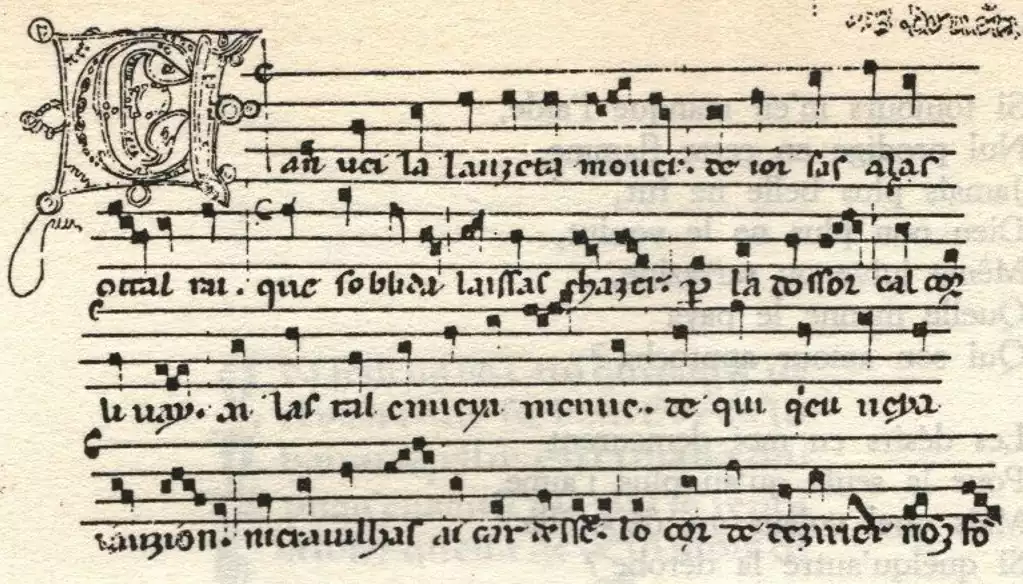 Can uei la lauzeta mouer. de ioi sas alas
contral rai. que soblida laissas chazer. p la dossor cal cor
li uay. ai las tal enueya menue. de qui q'eu ueya
iauzion. merauilhas ai car desse. lo cor de dezirier nom fo